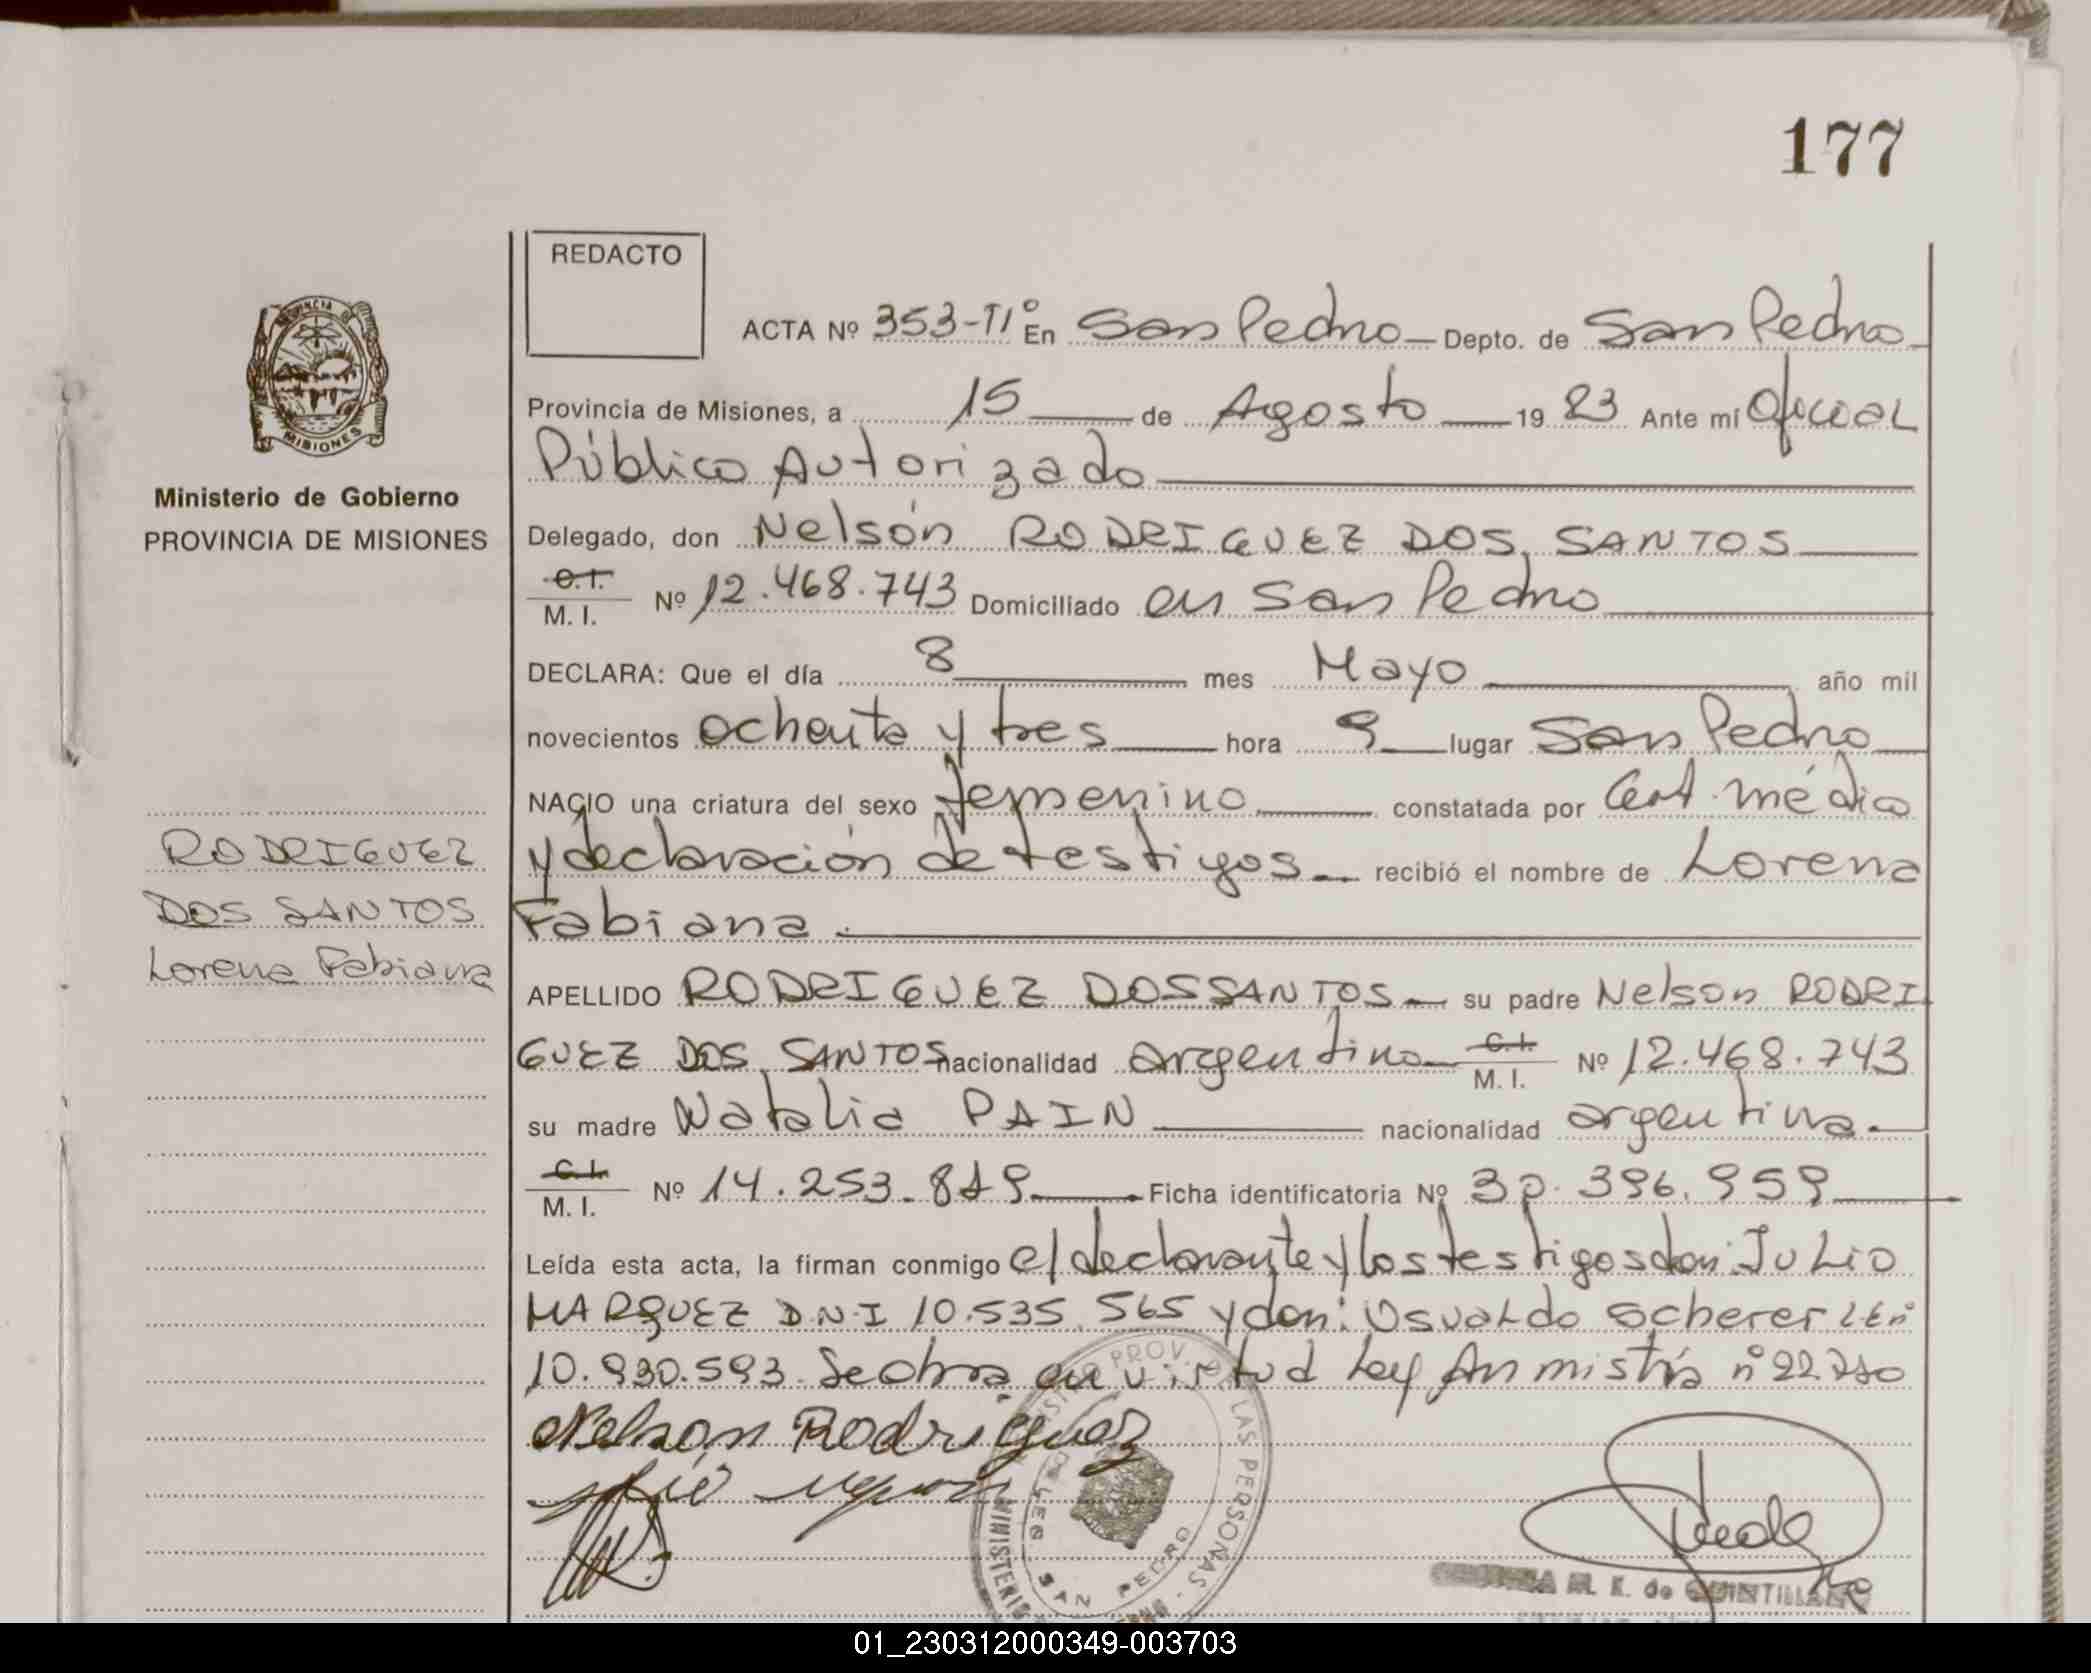 177
REDACTO
ACTA Nº 353-TIº En San Pedro Depto. de San Pedro
Provincia de Misiones, a 15 de Agosto 1983 Ante mí Oficial
Público Autorizado
Ministerio de Gobierno
PROVINCIA DE MISIONES
Delegado, don Nelsón RODRIGUEZ DOS SANTOS
C.I.
M. I. Nº 12.468.743 Domiciliado en San Pedro
DECLARA: Que el día 8 mes Mayo año mil
novecientos ochenta y tres hora 9 lugar San Pedro
NACIO una criatura del sexo femenino constatada por Cert. médico
y declaración de testigos recibió el nombre de Lorena
Fabiana
RODRIGUEZ
DOS SANTOS
Lorena Fabiana
APELLIDO RODRIGUEZ DOS SANTOS su padre Nelson RODRI
GUEZ DOS SANTOS nacionalidad argentino C.I.
M. I. Nº 12.468.743
su madre Natalia PAIN nacionalidad argentina.
C.I.
M. I. Nº 14.253.819 Ficha identificatoria Nº 30.396.959
Leída esta acta, la firman conmigo el declarante y los testigos don: JULIO
MARQUEZ D.N.I 10.535.565 y don: Osvaldo Scherer L.E.nº
10.930.593. Se obra en virtud Ley Anmistía nº 22
Nelson Rodriguez
MINISTERIO PROV. DE LAS PERSONAS
SAN PEDRO
M. E. de QUINTILLAN
01_230312000349-003703